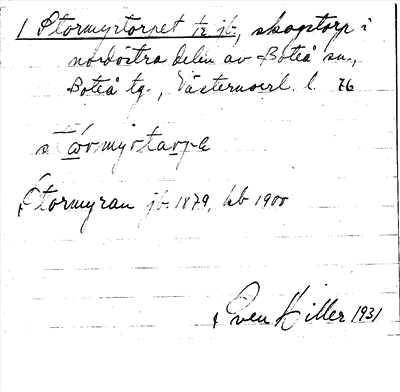 1 Stormyrtorpet tr jb., skogstorp i
nordöstra delen av Boteå sn.,
Boteå tg., Västernorrl. l. 76
Stormyran jb 1879, kb 1900
Sven Hiller 1931